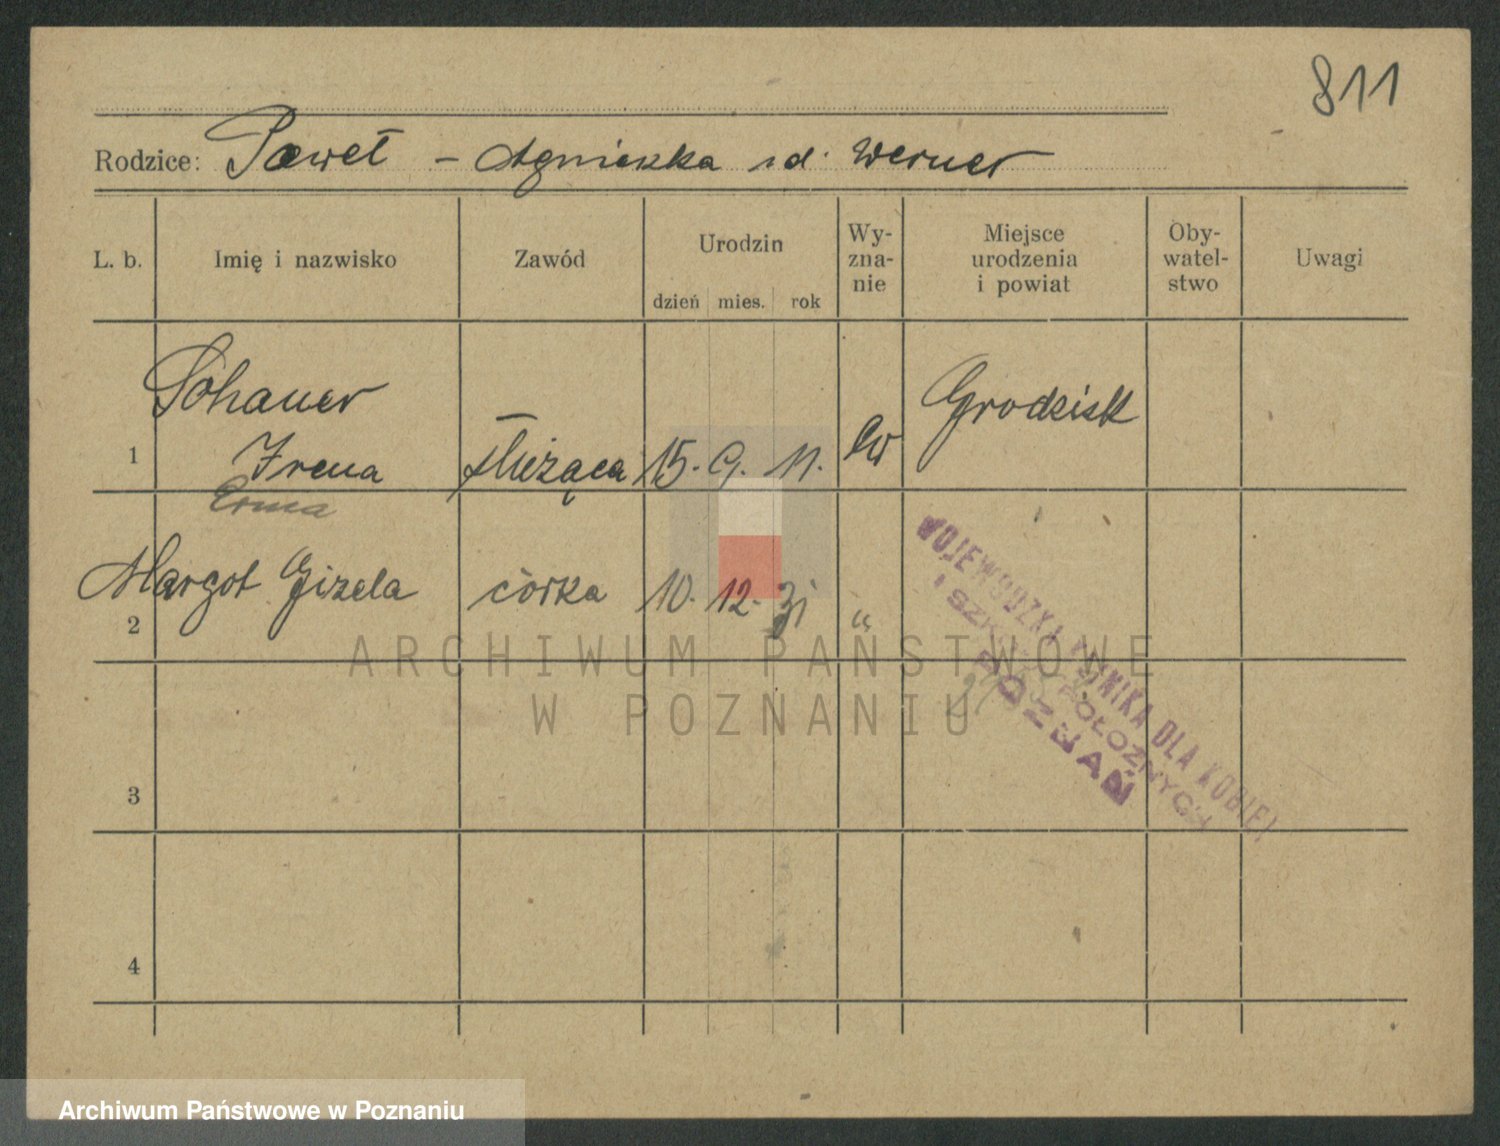 811
Rodzice: Paweł – Agnieszka z d. Werner
L. b. Imię i nazwisko Zawód Urodzin Wy-zna-nie Miejsce urodzenia i powiat Oby-watel-stwo Uwagi
dzień mies. rok
Schauer Grodzisk
1 Irena służąca 15. 9. 11. ew
Erna
Margot Gizela córka 10. 12. 31
2 "
WOJEWÓDZKA KLINIKA DLA KOBIET
I SZKOŁA POŁOŻNYCH
POZNAŃ
ARCHIWUM PAŃSTWOWE
W POZNANIU
3
4
Archiwum Państwowe w Poznaniu